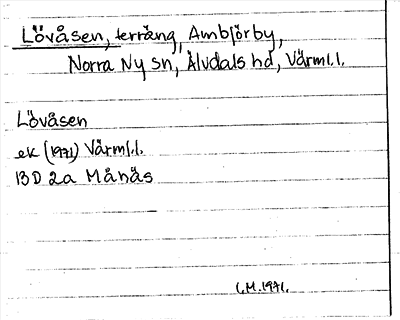 Lövåsen, terräng, Ambjörby,
Norra Ny sn, Älvdals hd, Värml.l.
Lövåsen
ek (1971) Värml.l.
13D 2a Månäs
C.M. 1971.